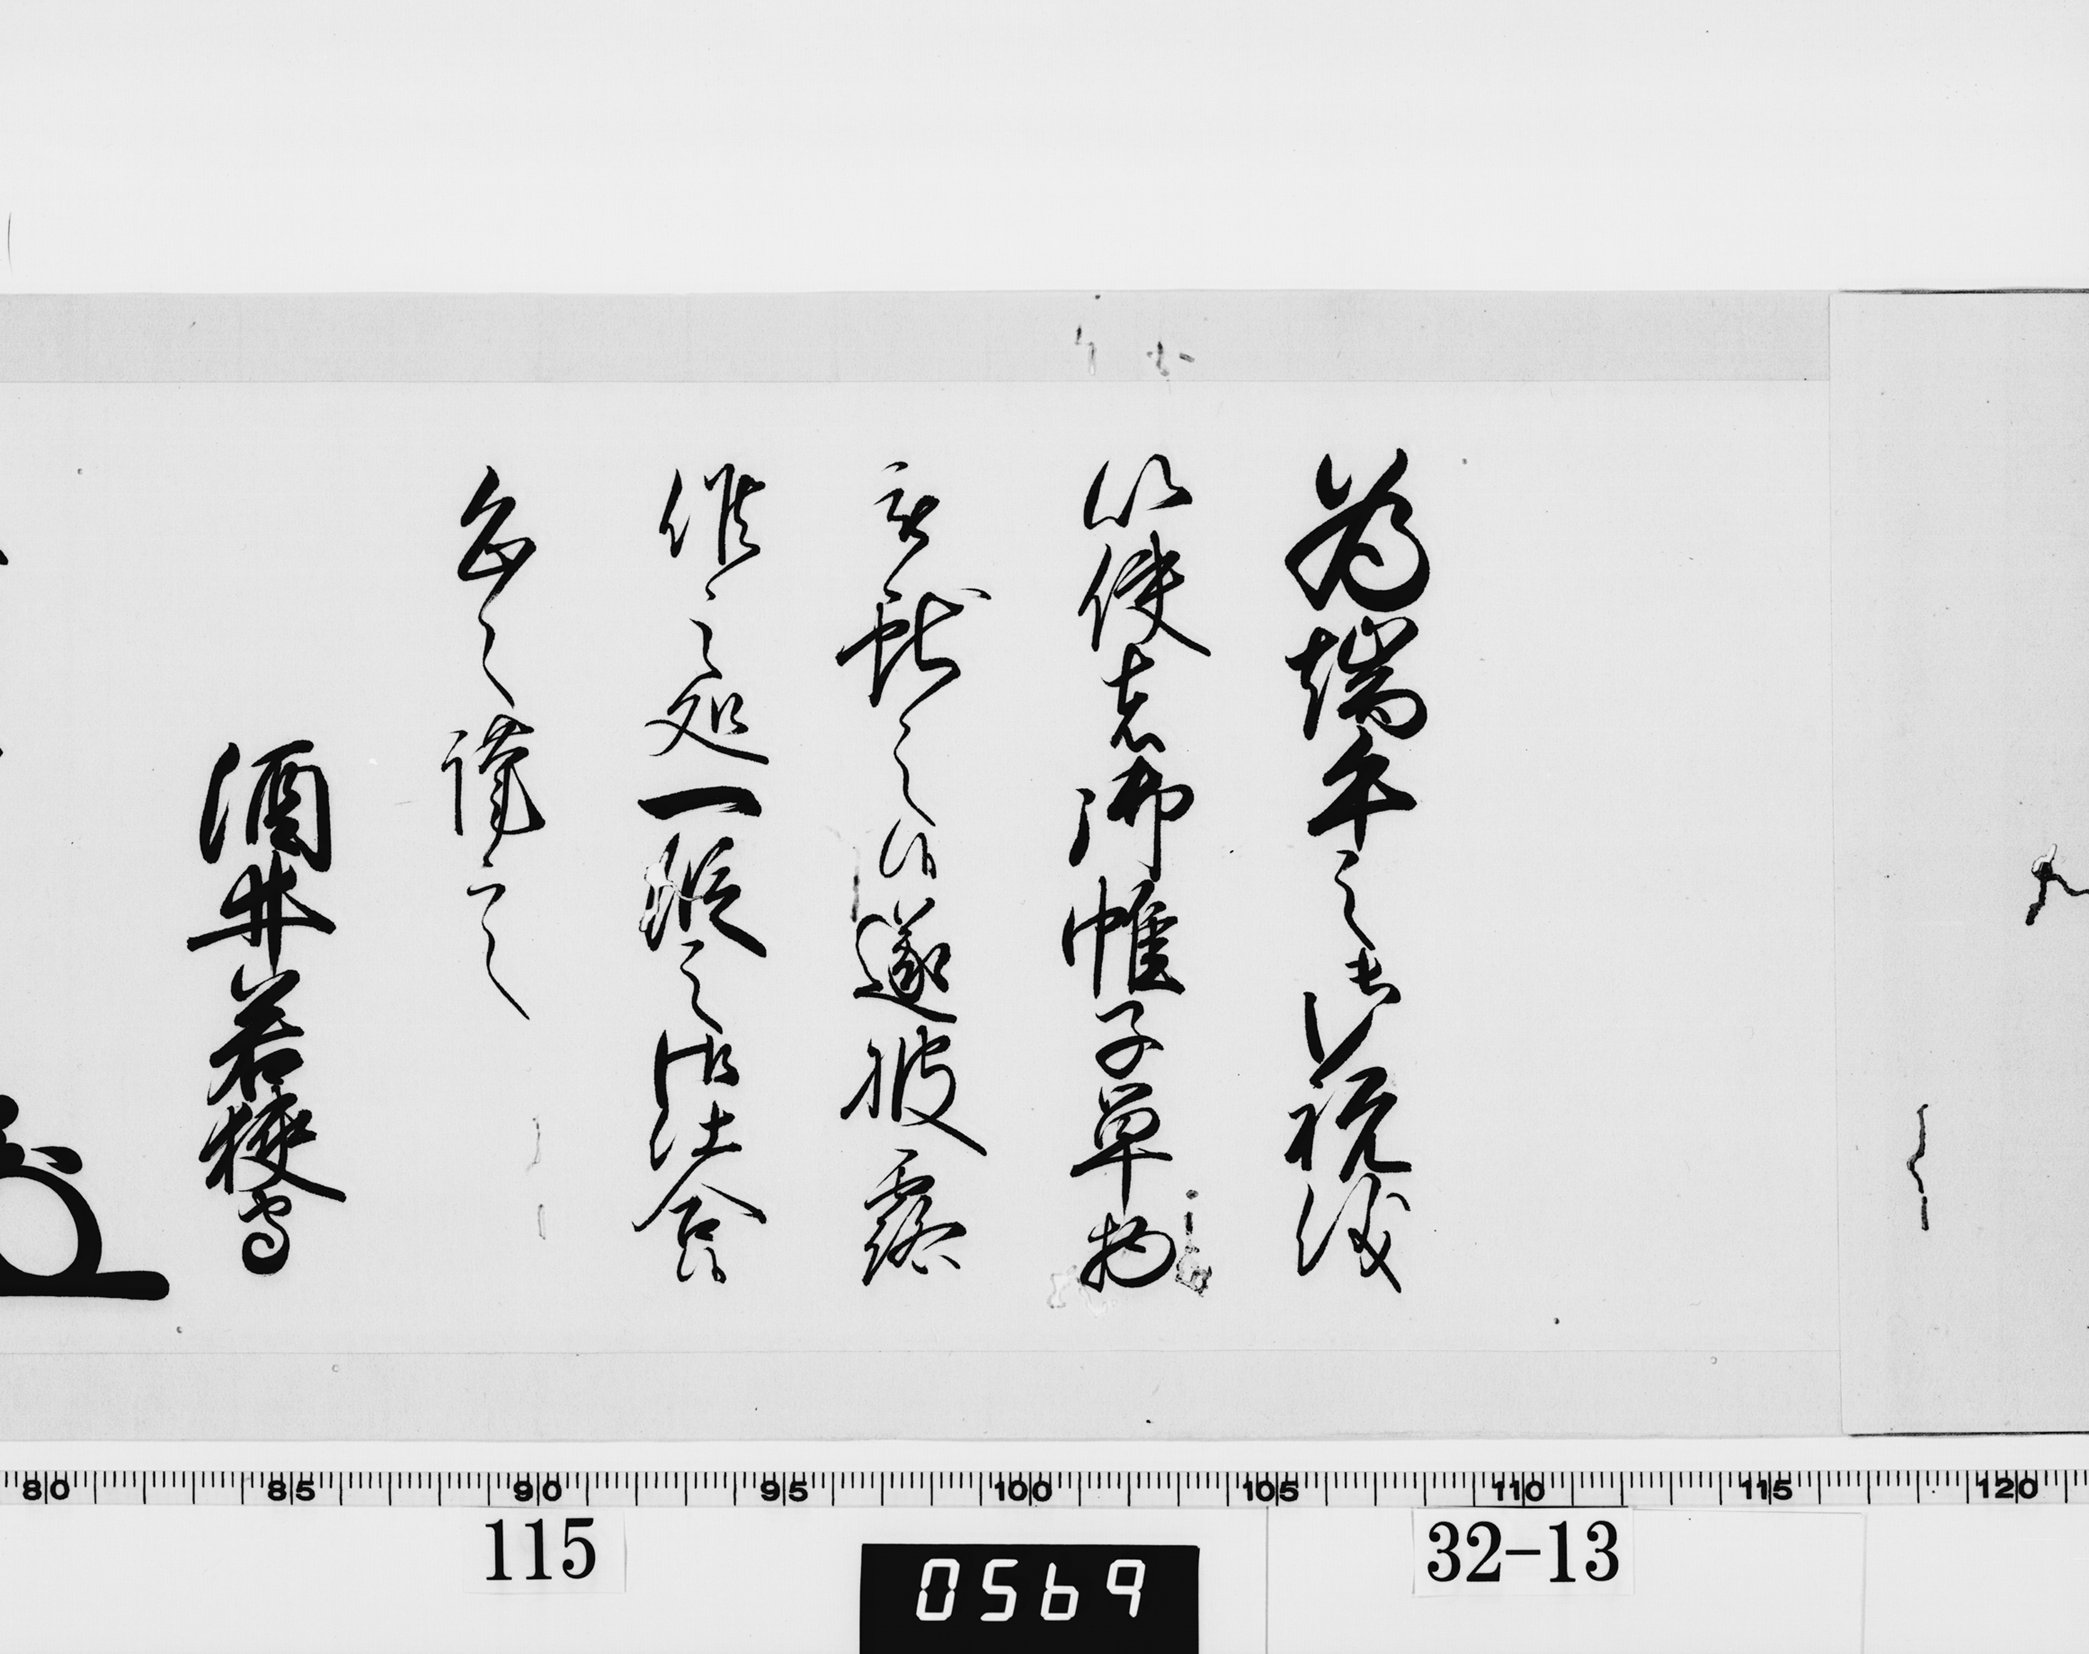 為端午之御祝儀
以使者御帷子単物
被献之則遂披露
候之処一段之御仕合候
恐々謹言
酒井若狭守
80 85 90 95 100 105 110 115 120
115
0569
32-13